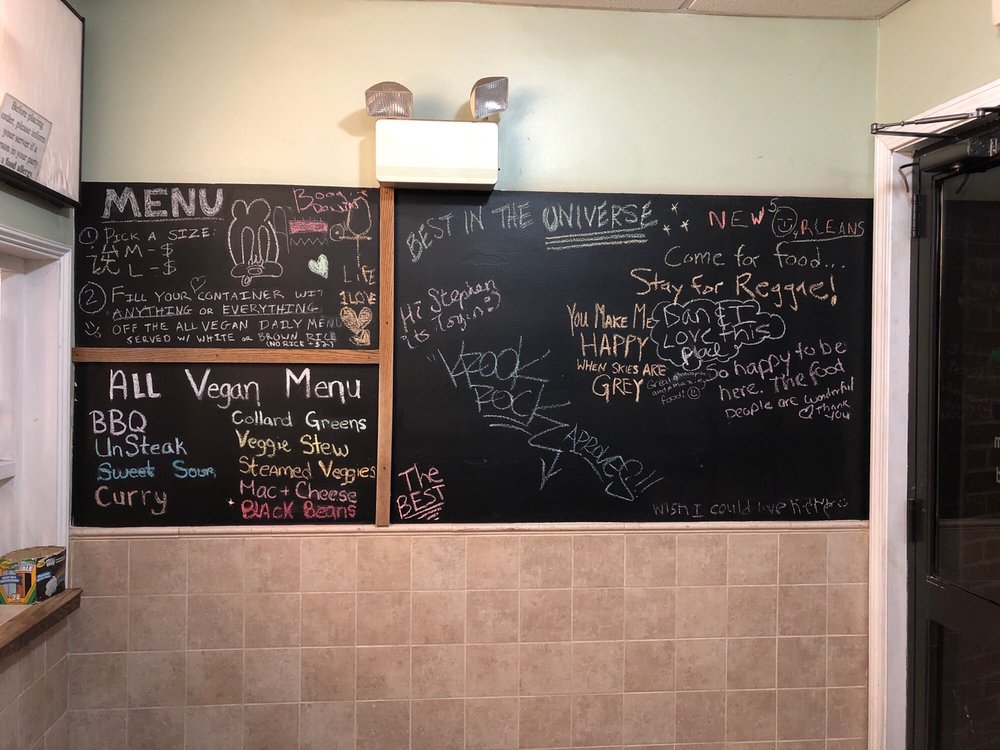 Before placing
order, please inform
your server if a
person in your party
a food allergy.
MENU
① PICK A SIZE:
M - $
L - $
② FILL YOUR CONTAINER WIT
ANYTHING or EVERYTHING
OFF THE ALL VEGAN DAILY MENU
SERVED W/ WHITE or BROWN RICE
(NO RICE +$2)
LIFE
1 LOVE
ALL Vegan Menu
BBQ
UnSteak
Sweet Sour
Curry
Collard Greens
Veggie Stew
Steamed Veggies
Mac + Cheese
BLACK Beans
BEST IN THE UNIVERSE
Hi Stephen
its
KROOK
ROCK
APPROVES!!
The
BEST
NEW ORLEANS
Come for food...
Stay for Reggae!
YOU MAKE ME
HAPPY
WHEN SKIES ARE
GREY
Dan & I
Love this
place
Food!
So happy to be
here. The food
people are wonderful
Thank
you
wish I could live here
24